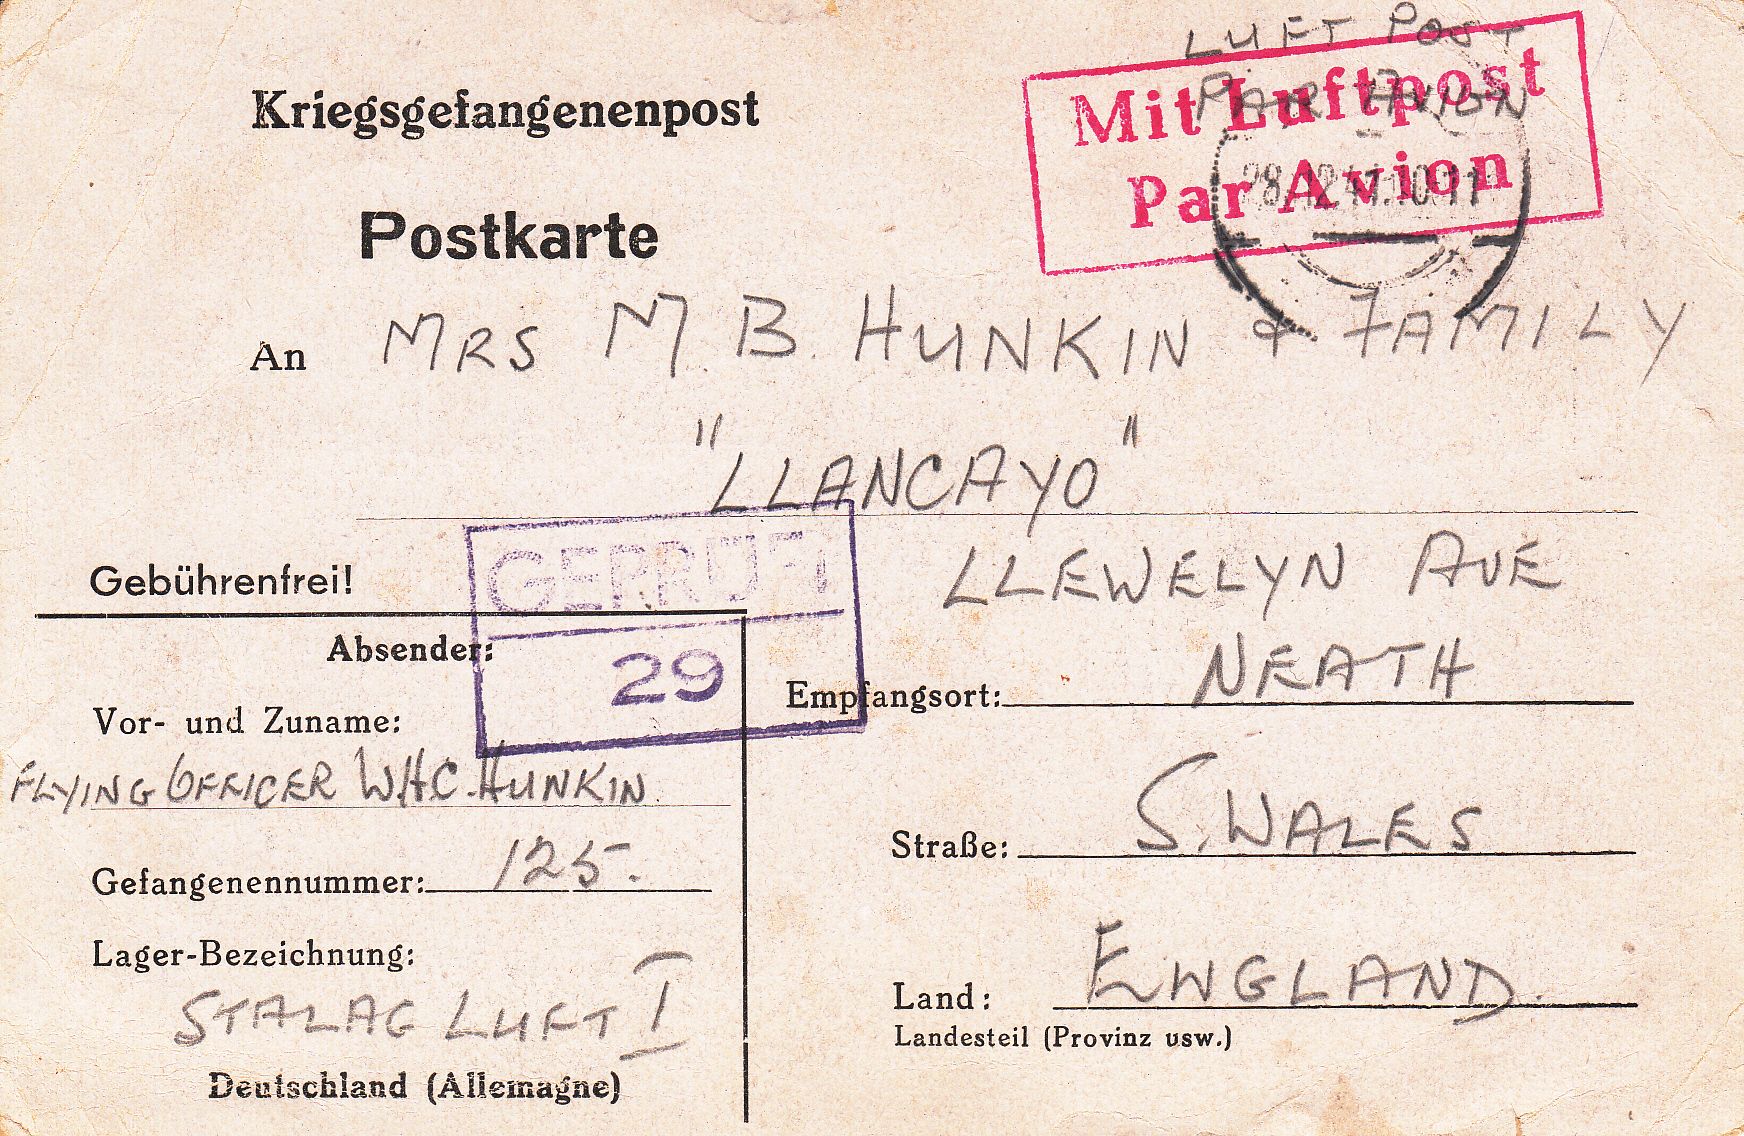 LUFT POST
PAR AVION
Mit Luftpost
Par Avion
Kriegsgefangenenpost
Postkarte
An MRS M B. HUNKIN & FAMILY
"LLANCAYO"
LLEWELYN AVE
Gebührenfrei!
GEPRÜFT
29
Absender:
Empfangsort: NEATH
Vor- und Zuname:
FLYING OFFICER W.H.C. HUNKIN
Straße: S. WALES
Gefangenennummer: 125.
Lager-Bezeichnung:
STALAG LUFT I
Land: ENGLAND.
Landesteil (Provinz usw.)
Deutschland (Allemagne)